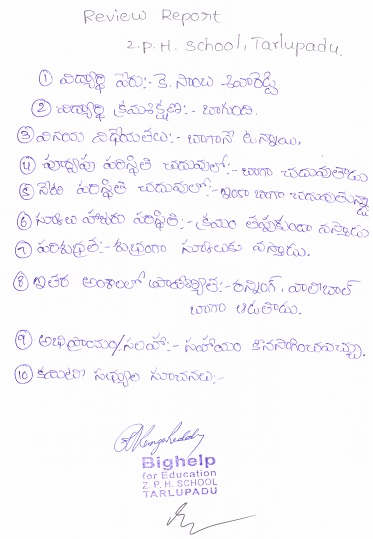 Review Report
Z.P.H. School, Tarlupadu.
① విద్యార్థి పేరు:- కె. సాంబ శివారెడ్డి
② విద్యార్థి క్రమశిక్షణ:- బాగుంది.
③ వినయ విధేయతలు:- బాగానే ఉన్నాయి,
④ పూర్వపు పరిస్థితి చదువులో:- బాగా చదువుతాడు
⑤ నేటి పరిస్థితి చదువులో:- ఇంకా బాగా చదువుతున్నాడు
⑥ స్కూలు హాజరు పరిస్థితి:- క్రమం తప్పకుండా వస్తాడు
⑦ పరిశుభ్రత:- శుభ్రంగా స్కూలుకు వస్తాడు.
⑧ ఇతర అంశాలలో :- రన్నింగ్, వాలీబాల్
బాగా ఆడుతాడు.
⑨ అభిప్రాయం/సలహా:- సహాయం కొనసాగించవచ్చు.
⑩ కమిటీ సభ్యుల సూచనలు:-
Bighelp
for Education
Z. P. H. SCHOOL
TARLUPADU